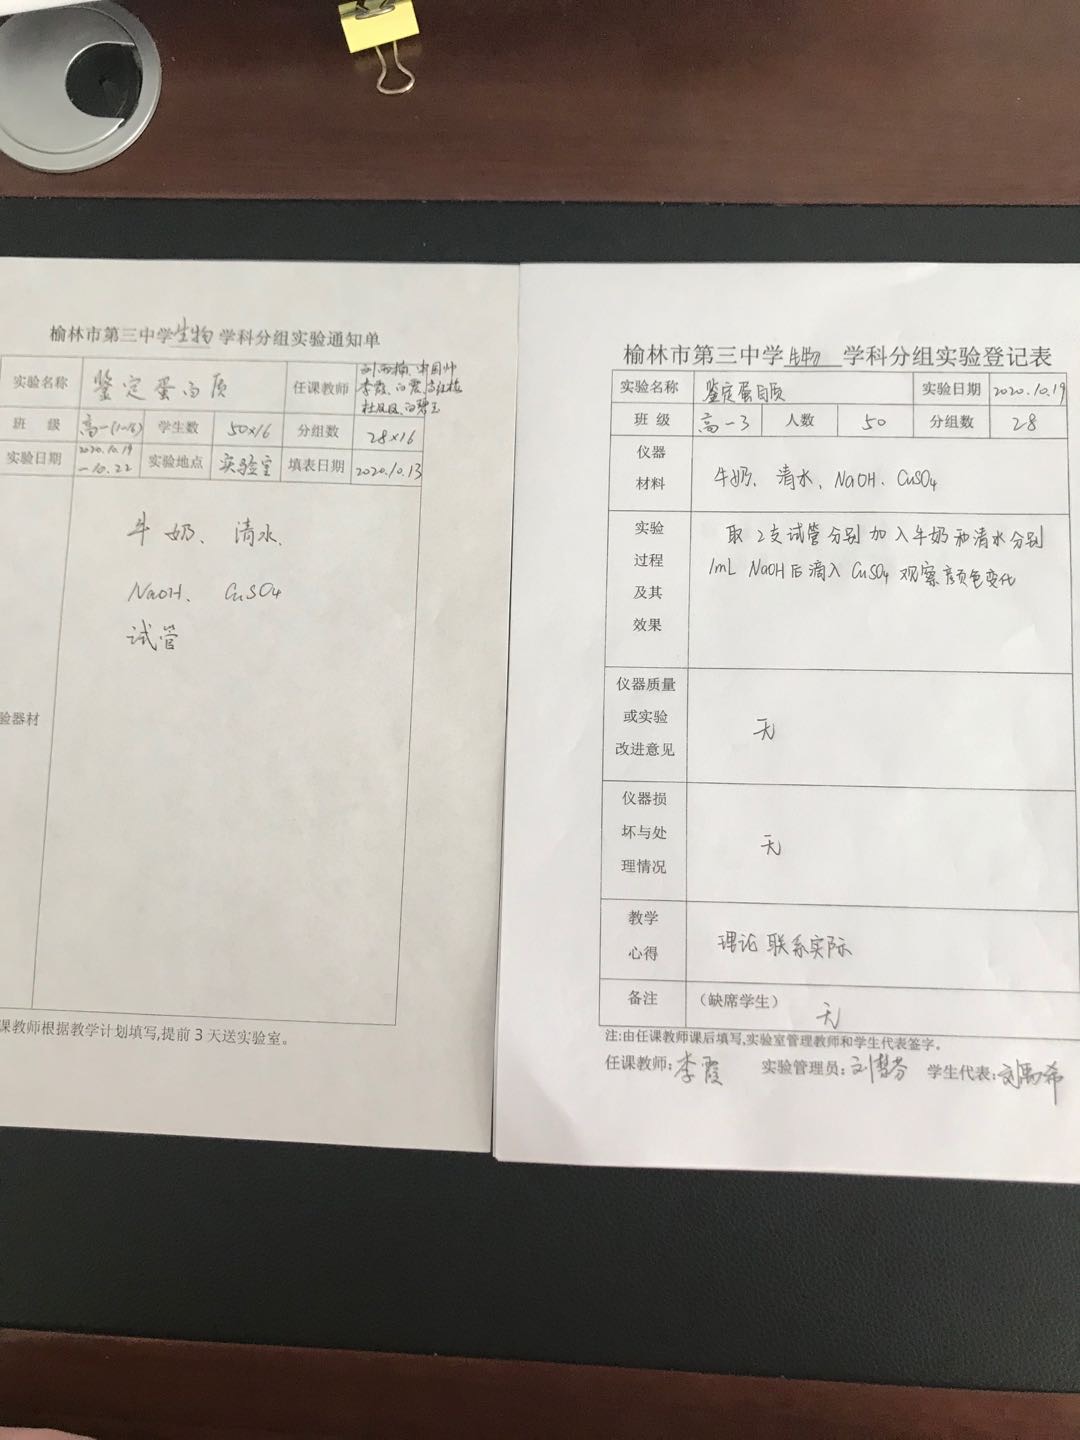 榆林市第三中学生物学科分组实验通知单
实验名称 鉴定蛋白质 任课教师
李霞、白霞
班 级 高一(1-16) 学生数 50×16 分组数 28×16
实验日期 2020.10.19-10.22 实验地点 实验室 填表日期 2020.10.13
牛奶、清水、
NaOH、CuSO4
试管
验器材
课教师根据教学计划填写,提前3天送实验室。
榆林市第三中学生物学科分组实验登记表
实验名称 鉴定蛋白质 实验日期 2020.10.19
班 级 高一3 人数 50 分组数 28
仪器
材料
牛奶、清水、NaOH、CuSO4
实验
过程
及其
效果
取2支试管分别加入牛奶和清水分别
1mL NaOH后滴入CuSO4观察颜色变化
仪器质量
或实验
改进意见
无
仪器损
坏与处
理情况
无
教学
心得
理论联系实际
备注 (缺席学生) 无
注:由任课教师课后填写,实验室管理教师和学生代表签字。
任课教师:李霞 实验管理员:刘慧芬 学生代表:刘禹希